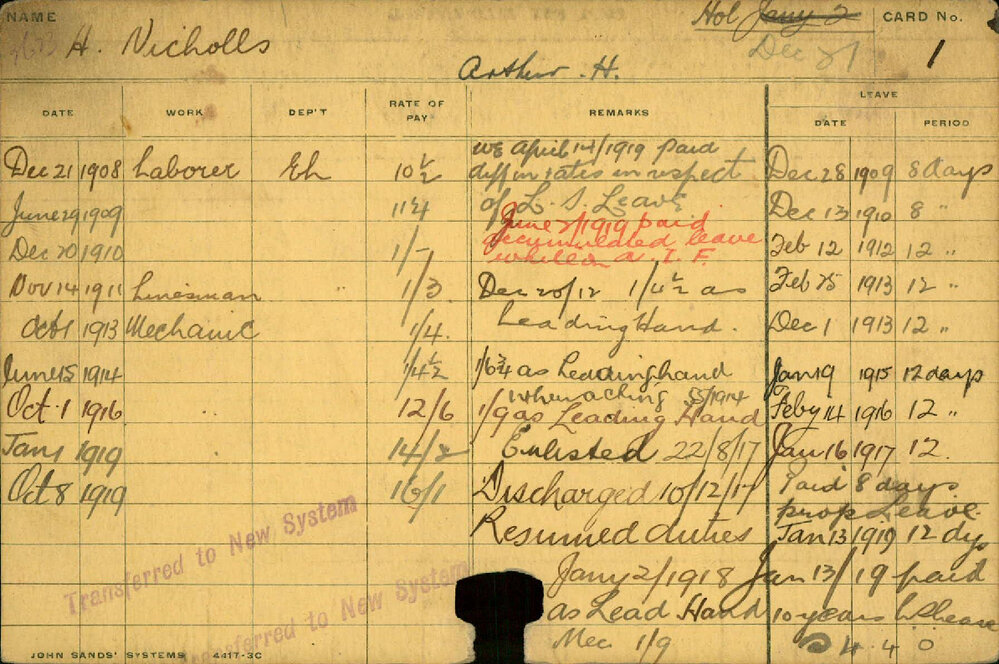 NAME
H. Nicholls
Arthur. H.
Hol Jany 2
Dec 21
CARD No.
1
DATE WORK DEP'T RATE OF PAY REMARKS LEAVE
DATE PERIOD
Dec 21 1908 Laborer Eh 10½
June 29 1909 11¼
Dec 20 1910 1/-
Nov 14 1911 Linesman " 1/3
Oct 1 1913 Mechanic 1/4
June 15 1914 1/4½
Oct. 1 1916 12/6
Jan 1 1919 14/2
Oct 8 1919 16/1
WE April 14/1919 paid
diff in rates in respect
of L. S. Leave
June 2/1919 paid
accumulated leave
while on A. I. F.
Dec 20/12 1/4½ as
Leading Hand.
1/6¾ as Leadinghand
when acting 1914
1/9 as Leading Hand
Enlisted 22/8/17
Discharged 10/12/17
Resumed duties
Jany 2/1918
as Lead Hand
Mec 1/9
Dec 28 1909 8 days
Dec 13 1910 8 "
Feb 12 1912 12 "
Feb 25 1913 12 "
Dec 1 1913 12 "
Jan 19 1915 12 days
Feby 14 1916 12 "
Jan 16 1917 12.
Paid 8 days
prop Leave
Jan 13 1919 12 dys
Jan 13/19 paid
10 years L S leave
4. 4. 0
Transferred to New System
Transferred to New System
JOHN SANDS' SYSTEMS 4417-3C